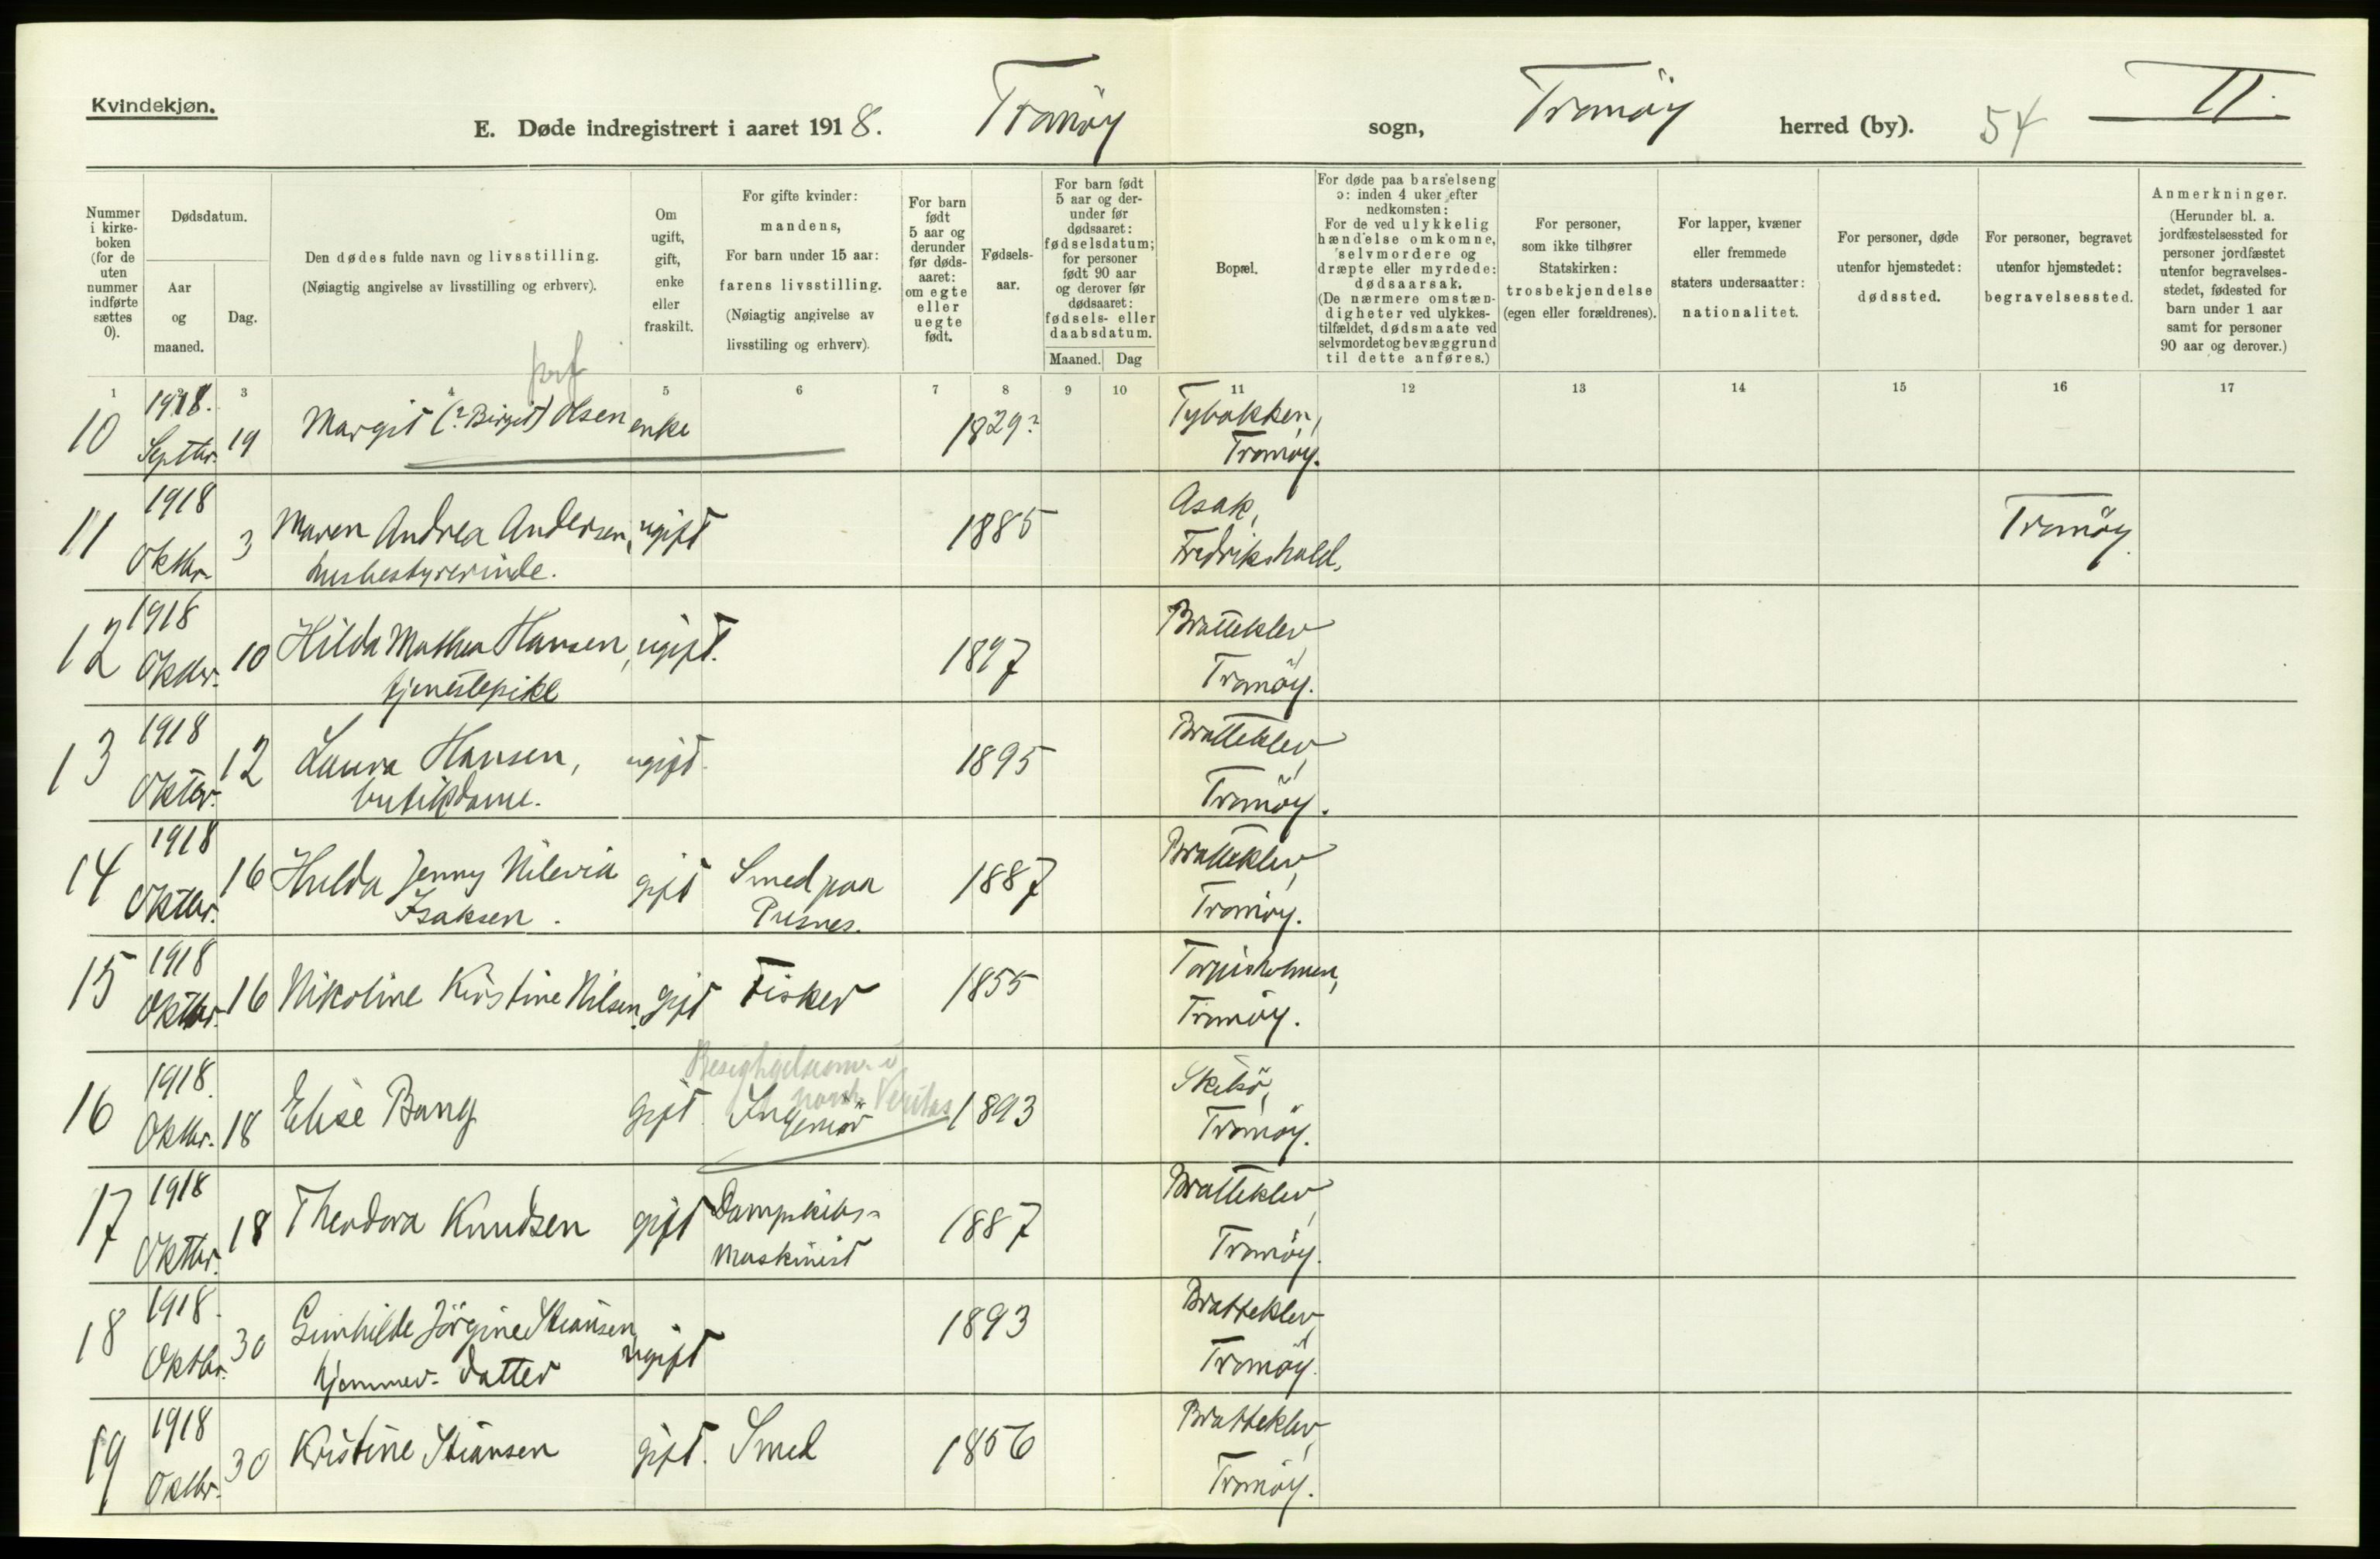 Kvindekjøn.
E. Døde indregistrert i aaret 1918. Tromöy sogn, Tromöy herred (by). 54 II.
Nummer i kirke- boken (for de uten nummer indførte sættes 0).
Dødsdatum.
Aar og maaned.
Dag.
Den dødes fulde navn og livsstilling.
(Nøiagtig angivelse av livsstilling og erhverv).
Om ugift, gift, enke eller fraskilt.
For gifte kvinder: mandens,
For barn under 15 aar: farens livsstilling.
(Nøiagtig angivelse av livsstiling og erhverv).
For barn født 5 aar og derunder før døds- aaret: om egte eller uegte født.
Fødsels- aar.
For barn født 5 aar og der- under før dødsaaret: fødselsdatum; for personer født 90 aar og derover før dødsaaret: fødsels- eller daabsdatum.
Maaned. Dag
Bopæl.
For døde paa barselseng ɔ: inden 4 uker efter nedkomsten:
For de ved ulykkelig hændelse omkomne, selvmordere og dræpte eller myrdede: dødsaarsak.
(De nærmere omstæn- digheter ved ulykkes- tilfældet, dødsmaate ved selvmordet og bevæggrund til dette anføres.)
For personer, som ikke tilhører Statskirken: trosbekjendelse (egen eller forældrenes).
For lapper, kvæner eller fremmede staters undersaatter: nationalitet.
For personer, døde utenfor hjemstedet: dødssted.
For personer, begravet utenfor hjemstedet: begravelsessted.
Anmerkninger.
(Herunder bl. a. jordfæstelsessted for personer jordfæstet utenfor begravelses- stedet, fødested for barn under 1 aar samt for personer 90 aar og derover.)
1 3 4 5 6 7 8 9 10 11 12 13 14 15 16 17
10 1918. Septbr. 19 Margit (? Birgit) Olsen enke 1829? Tybakken, Tromöy.
11 1918 Oktbr. 3 Maren Andrea Andersen, husbestyrerinde. ugift 1885 Asak, Fredrikshald. Tromöy.
12 1918 Oktbr. 10 Hilda Mathea Hansen, tjenestepike ugift. 1897 Bratteklev, Tromöy.
13 1918 Oktbr. 12 Laura Hansen, butikdame. ugift. 1895 Bratteklev, Tromöy.
14 1918 Oktbr. 16 Hulda Jenny Nilevia Isaksen. gift Smed paa Pusnes. 1887 Bratteklev, Tromöy.
15 1918 Oktbr. 16 Nikoline Kirstine Nilsen. gift Fisker 1855 Torjusholmen, Tromöy.
16 1918. Oktbr. 18 Elise Bang gift. Ingeniör norsk Veritas 1893 Skilsö, Tromöy.
17 1918 Oktbr. 18 Theodora Knudsen gift Dampskibs- maskinist 1887 Bratteklev, Tromöy.
18 1918. Oktbr. 30 Gunhilde Jörgine Stiansen, hjemmev. datter ugift 1893 Bratteklev, Tromöy.
19 1918 Oktbr. 30 Kristine Stiansen gift. Smed 1856 Bratteklev, Tromöy.